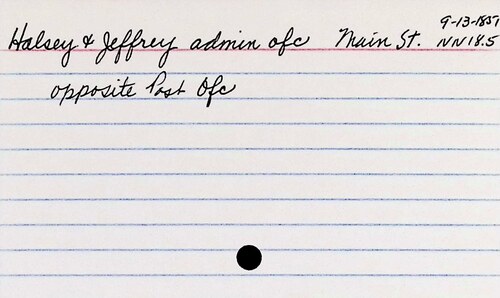 Halsey & Jeffrey admin ofc Main St. 9-13-1857
NN18.5
opposite Post Ofc